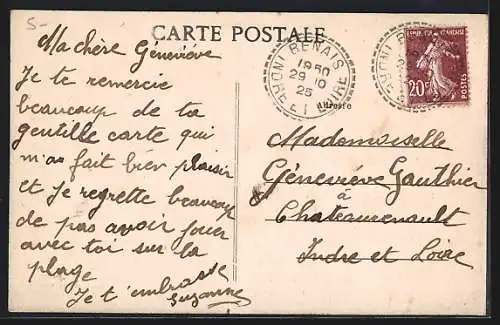 5-
CARTE POSTALE
Ma chère Géneviève
Je te remercie
beaucoup de ta
gentille carte qui
m'a fait bien plaisir
et Je regrette beaucoup
de pas avoir jouer
avec toi sur la
plage
Je t'embrasse
Suzanne
BENAIS
1850
29 10
25
LOIRE
REPUBLIQUE FRANÇAISE
20c
POSTES
Adresse
Mademoiselle
Géneviève Gauthier
à
Chateaurenault
Indre et Loire